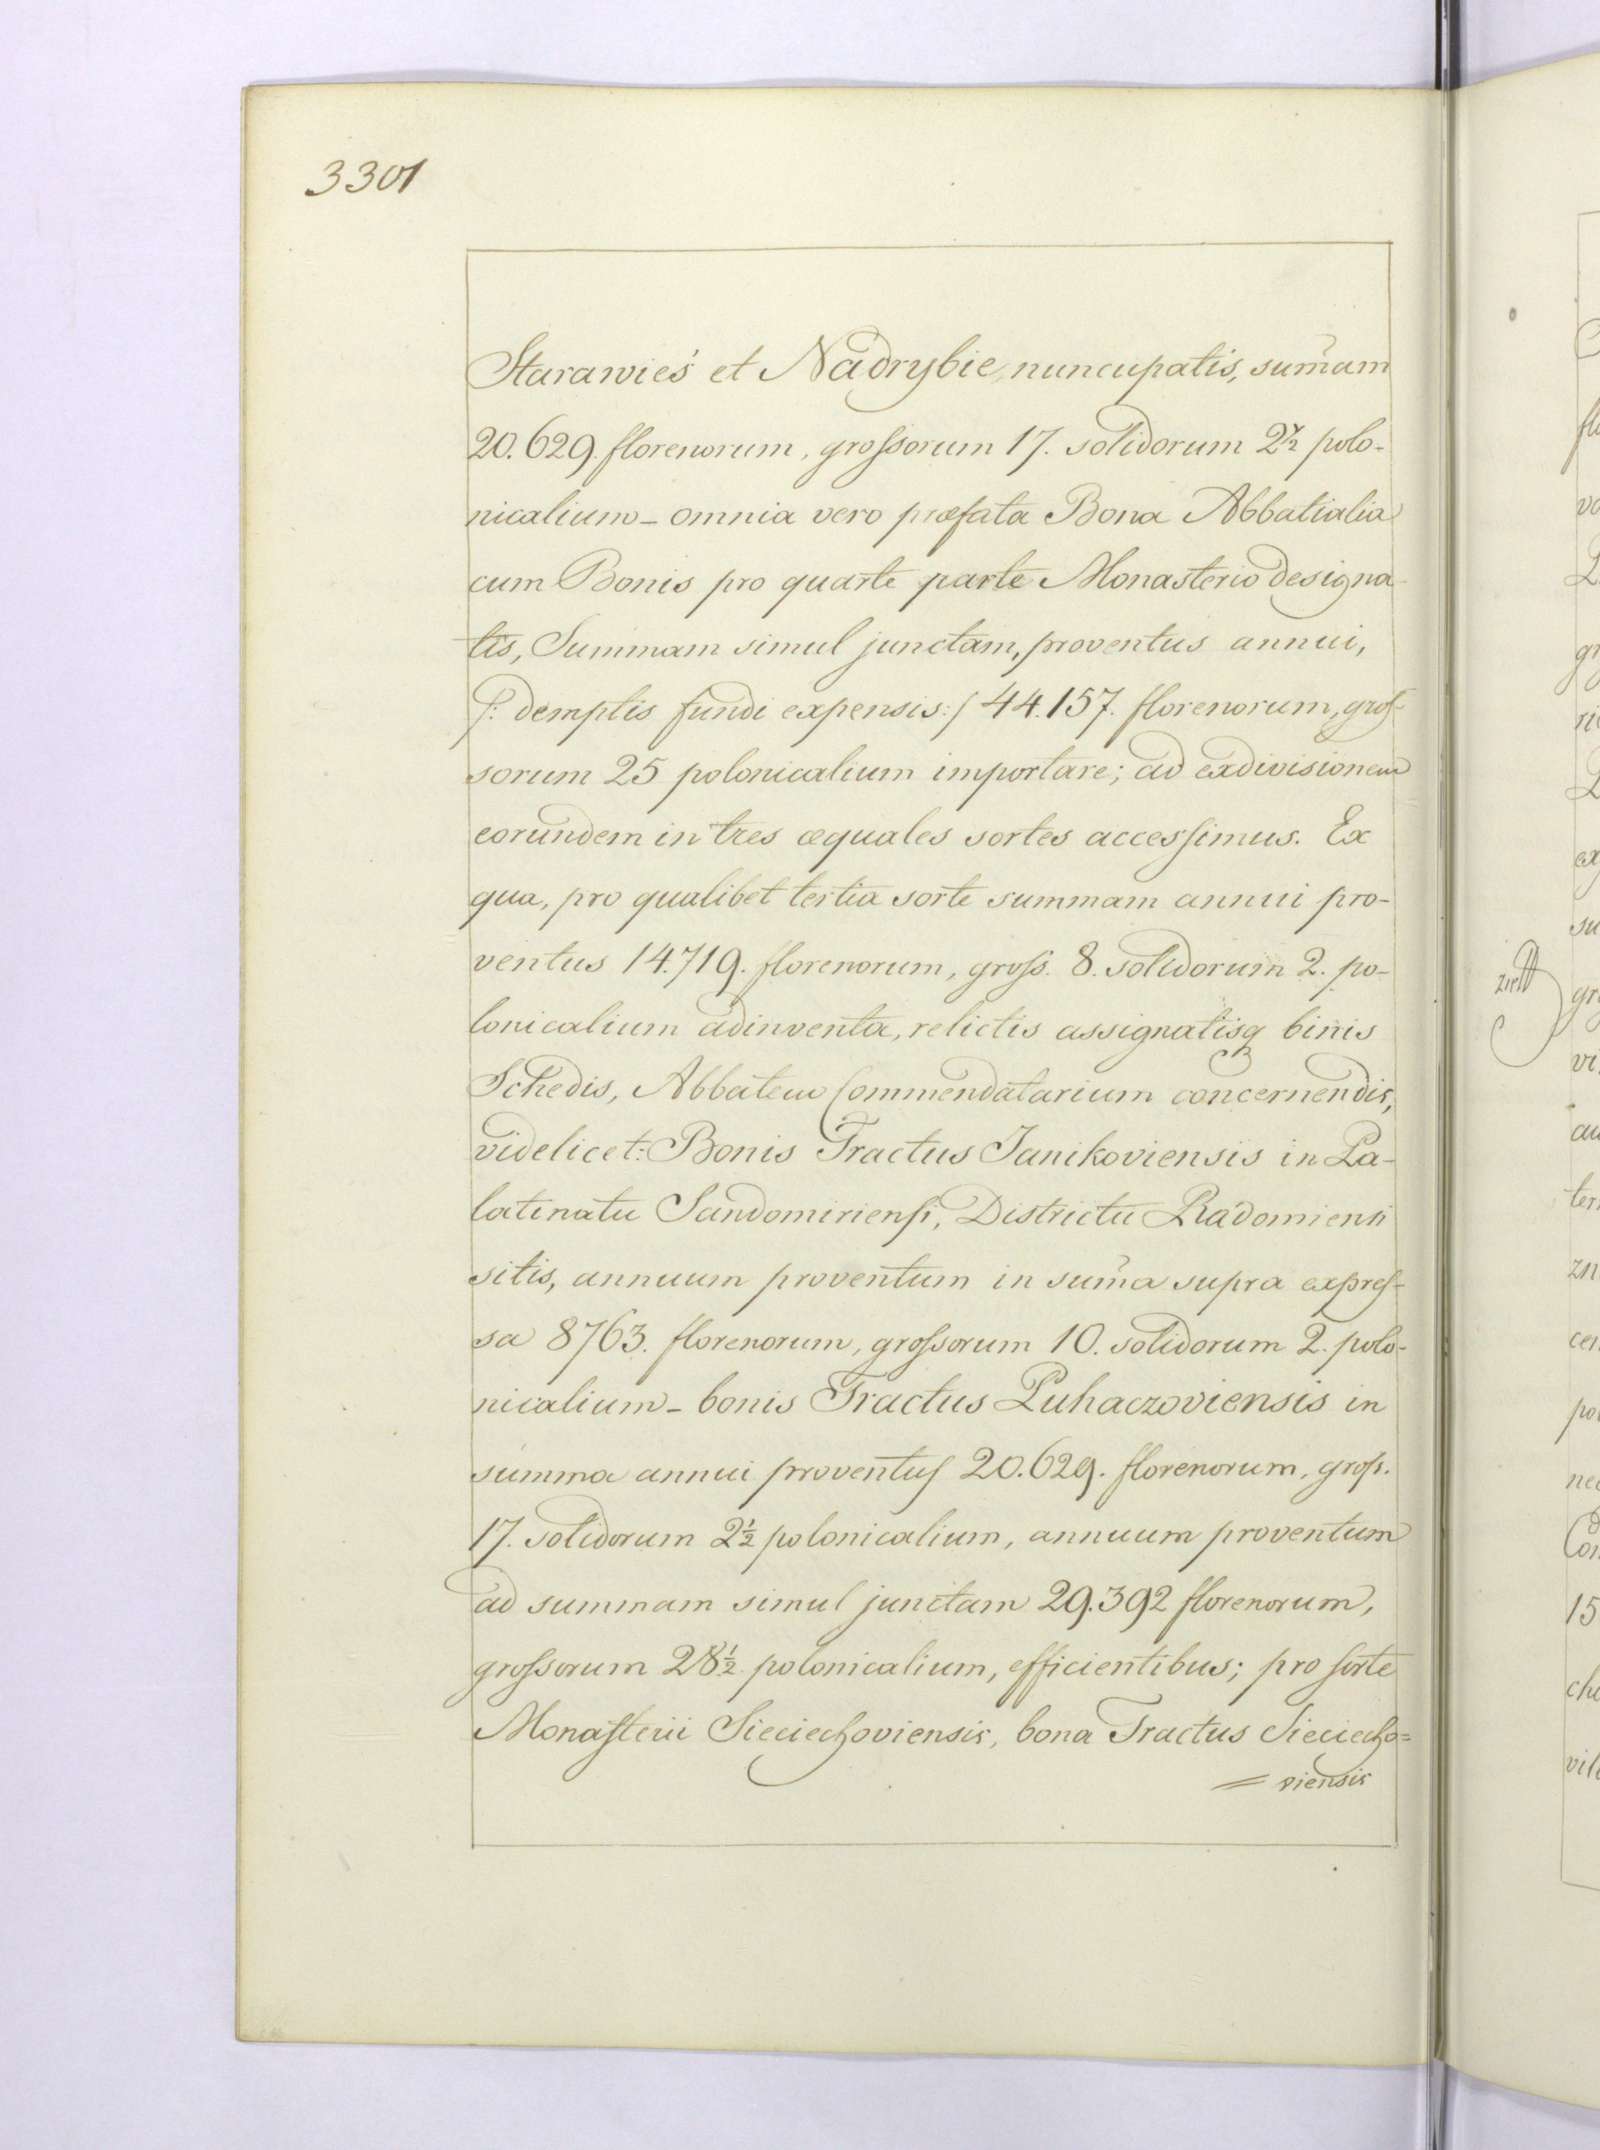 3301
Starawieś et Nadrybie, nuncupatis, sum̄am
20.629. florenorum, grossorum 17. solidorum 2½ polo-
nicalium – omnia vero præfata Bona Abbatialia
cum Bonis pro quarte parte Monasterio designa-
tis, Summam simul junctam, proventus annui,
/: demptis fundi expensis :/ 44.157. florenorum, gros-
sorum 25 polonicalium importare; ad exdivisionem
eorundem in tres æquales sortes accessimus. Ex
qua, pro qualibet tertia sorte summam annui pro-
ventus 14.719. florenorum, gross. 8. solidorum 2. po-
lonicalium adinventa, relictis assignatisq binis
Schedis, Abbatem Commendatarium concernendis,
videlicet: Bonis Tractus Janikoviensis in Pa-
latinatu Sandomiriensi, Districtu Radomiensi
sitis, annuum proventum in sum̄a supra expres-
sa 8763. florenorum, grossorum 10. solidorum 2. polo-
nicalium – bonis Tractus Puhaczoviensis in
summa annui proventus 20.629. florenorum, gross.
17. solidorum 2½ polonicalium, annuum proventum
ad summam simul junctam 29.392 florenorum,
grossorum 28½ polonicalium, efficientibus; pro sorte
Monasterii Sieciechoviensis, bona Tractus Sieciecho=
= viensis